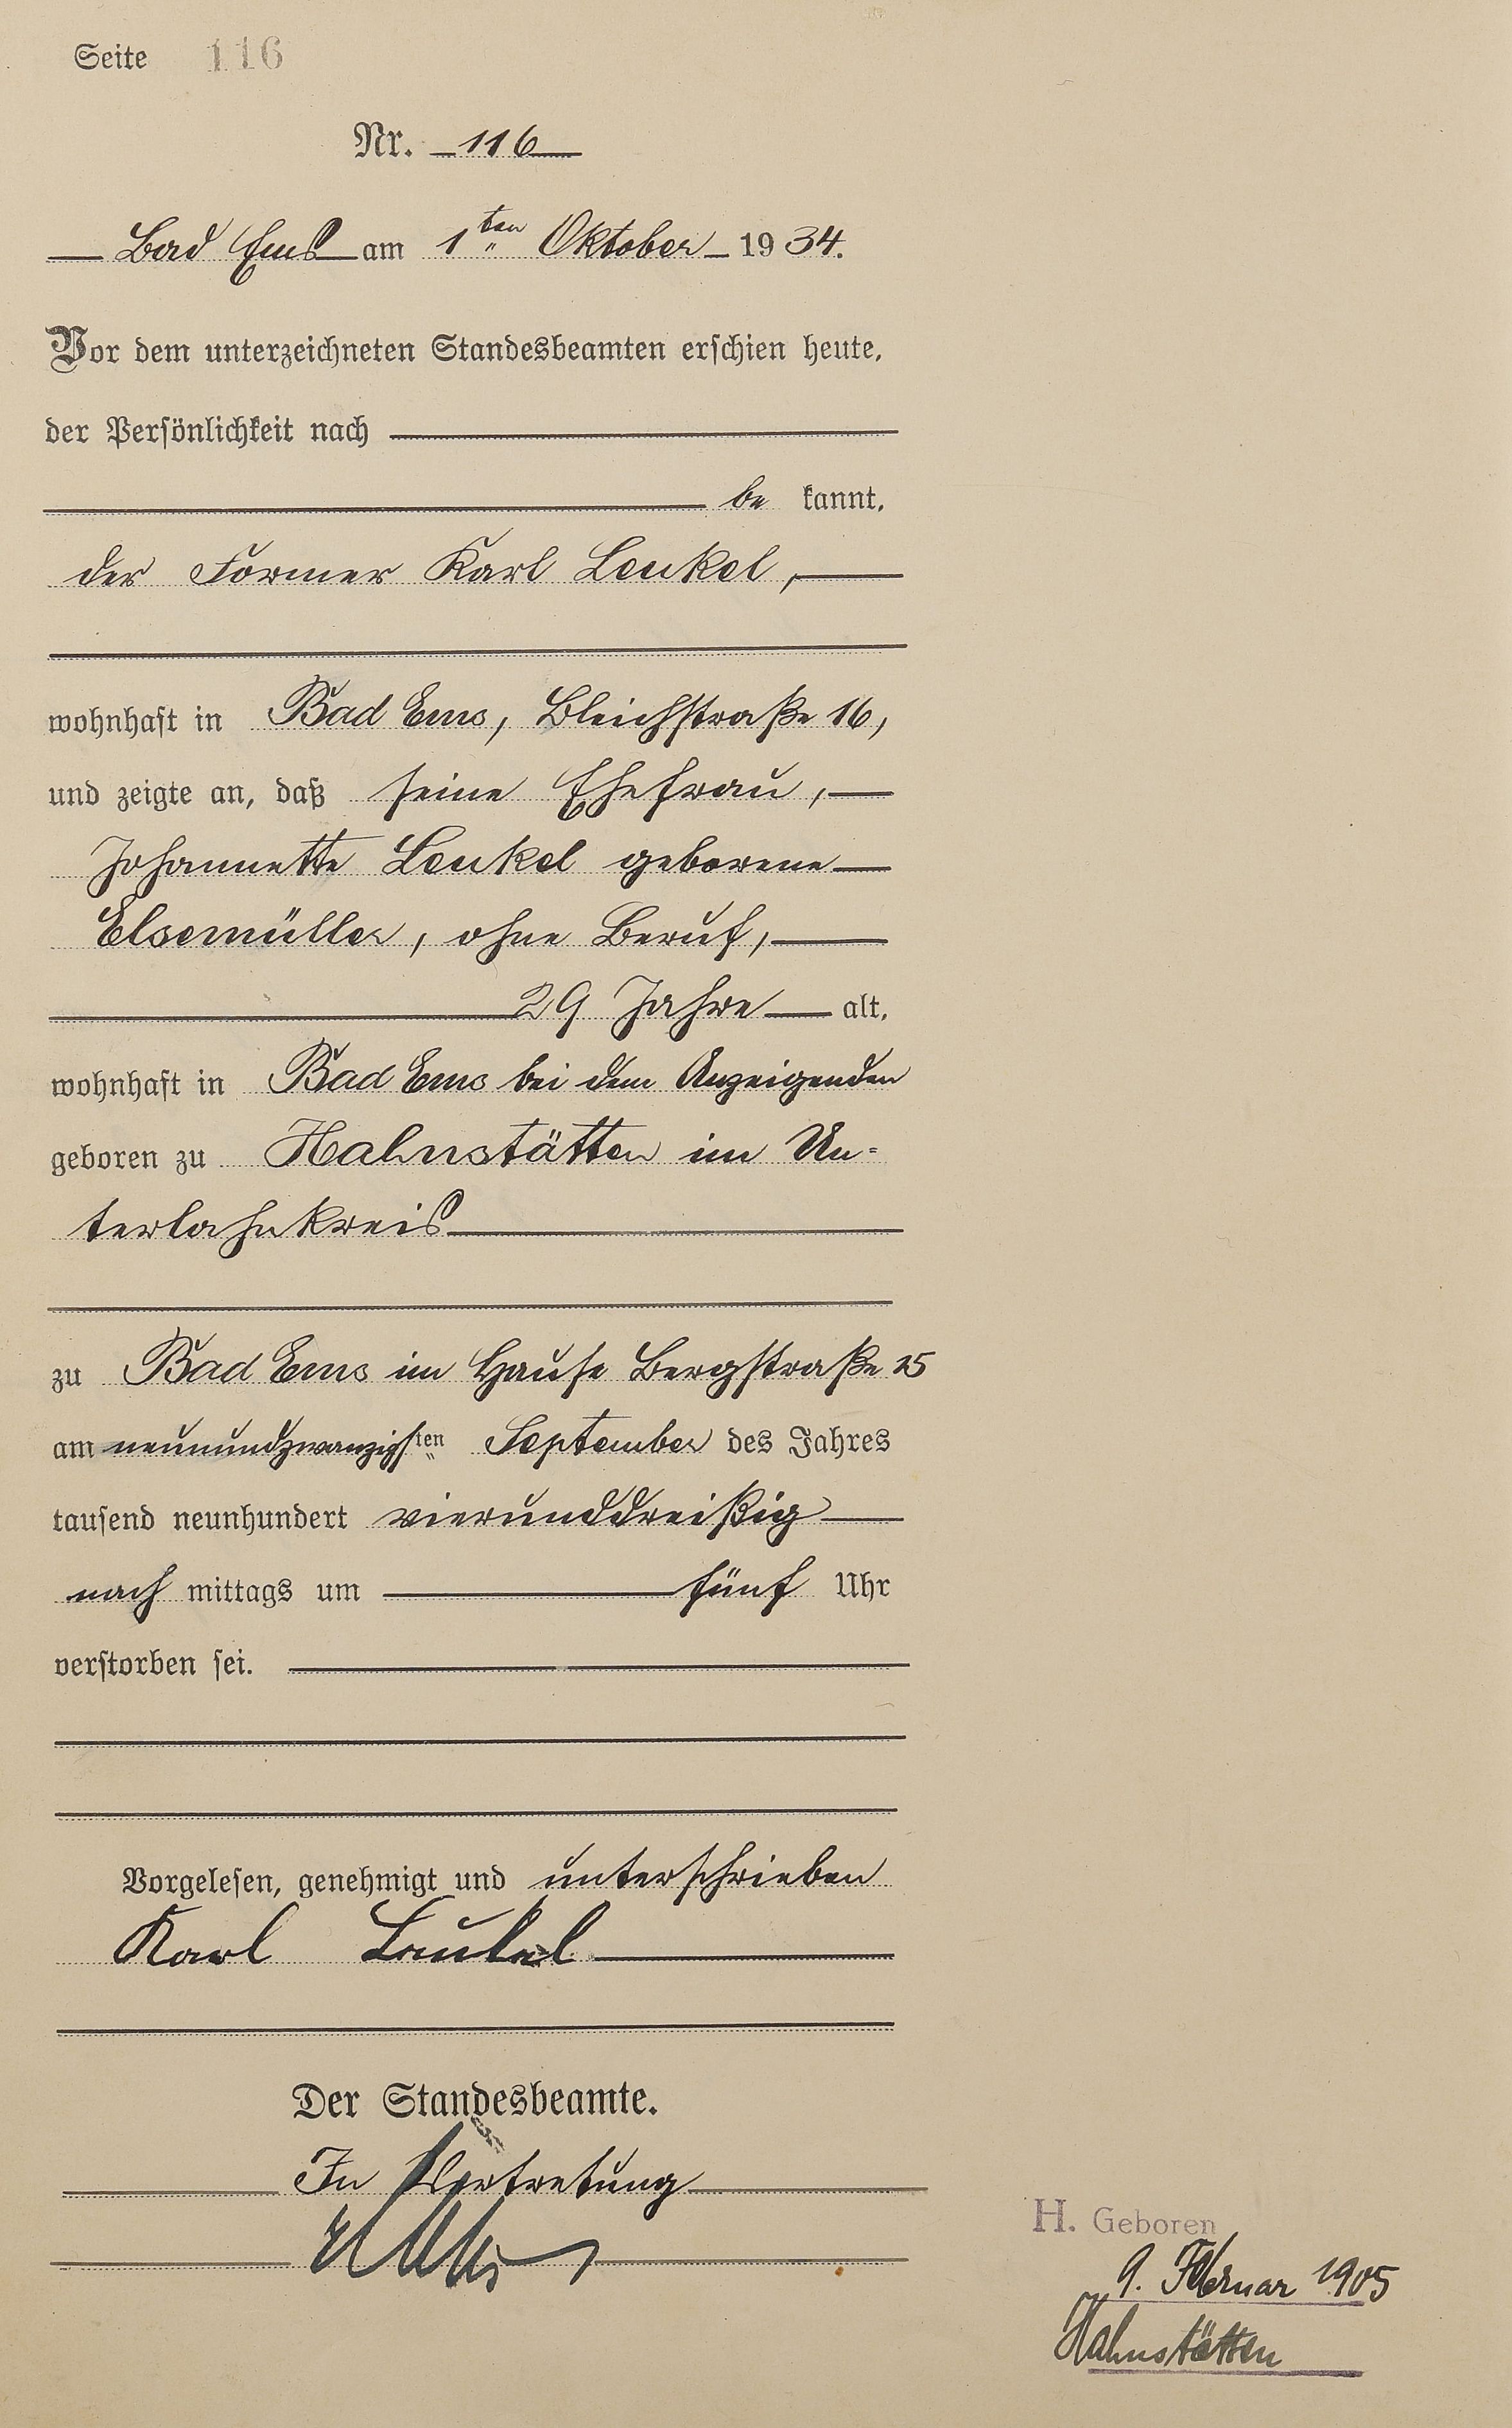 Seite 116
Nr. 116
Bad Ems am 1ten Oktober 1934.
Vor dem unterzeichneten Standesbeamten erschien heute,
der Persönlichkeit nach
be kannt,
der Former Karl Leukel,
wohnhaft in Bad Ems, Bleichstraße 16,
und zeigte an, daß seine Ehefrau,
Johannette Leukel geborene
Elsemüller, ohne Beruf,
29 Jahre alt,
wohnhaft in Bad Ems bei dem Anzeigenden
geboren zu Hahnstätten im Un-
terlahnkreis
zu Bad Ems im Hause Bergstraße 25
am neunundzwanzigsten September des Jahres
tausend neunhundert vierunddreißig
nach mittags um fünf Uhr
verstorben sei.
Vorgelesen, genehmigt und unterschrieben
Karl Leukel
Der Standesbeamte.
In Vertretung
H. Geboren
9. Februar 1905
Hahnstätten